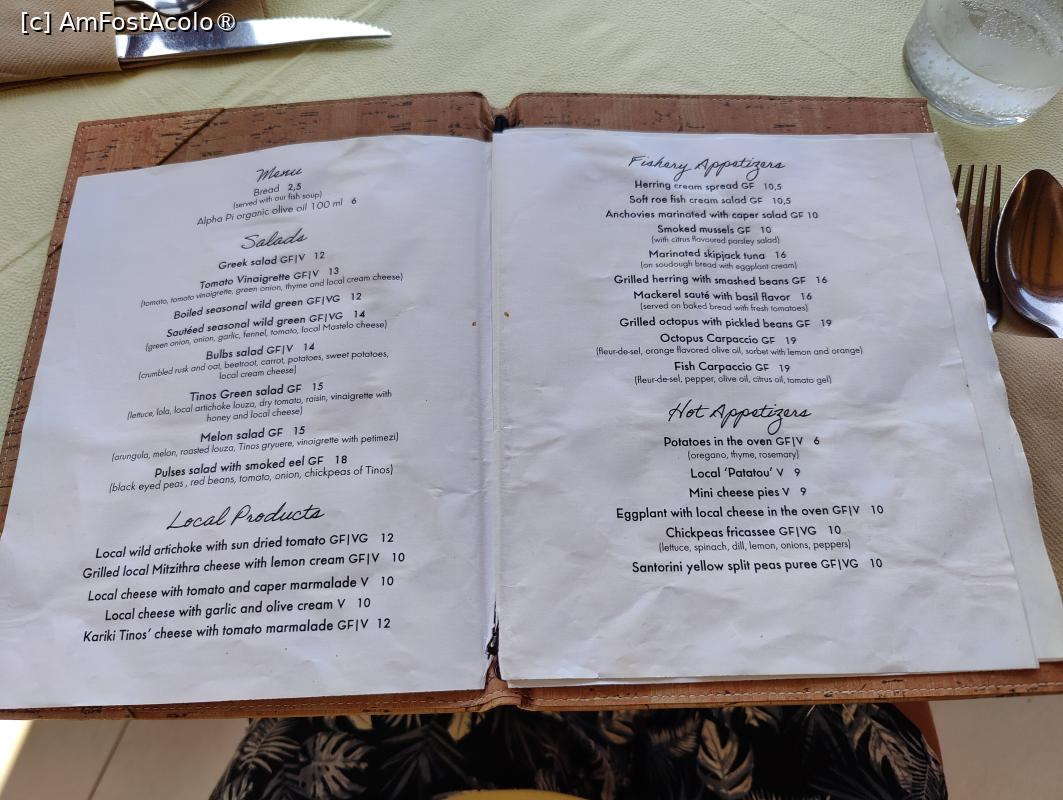 [c] AmFostAcolo®
Menu
Bread 2,5
(served with our fish soup)
Alpha Pi organic olive oil 100 ml 6
Salads
Greek salad GF|V 12
Tomato Vinaigrette GF|V 13
(tomato, tomato vinaigrette, green onion, thyme and local cream cheese)
Boiled seasonal wild green GF|VG 12
Sautéed seasonal wild green GF|VG 14
(green onion, onion, garlic, fennel, tomato, local Mastelo cheese)
Bulbs salad GF|V 14
(crumbled rusk and oat, beetroot, carrot, potatoes, sweet potatoes,
local cream cheese)
Tinos Green salad GF 15
(lettuce, lola, local artichoke louza, dry tomato, raisin, vinaigrette with
honey and local cheese)
Melon salad GF 15
(arungula, melon, roasted louza, Tinos gryuere, vinaigrette with petimezi)
Pulses salad with smoked eel GF 18
(black eyed peas , red beans, tomato, onion, chickpeas of Tinos)
Local Products
Local wild artichoke with sun dried tomato GF|VG 12
Grilled local Mitzithra cheese with lemon cream GF|V 10
Local cheese with tomato and caper marmalade V 10
Local cheese with garlic and olive cream V 10
Kariki Tinos' cheese with tomato marmalade GF|V 12
Fishery Appetizers
Herring cream spread GF 10,5
Soft roe fish cream salad GF 10,5
Anchovies marinated with caper salad GF 10
Smoked mussels GF 10
(with citrus flavoured parsley salad)
Marinated skipjack tuna 16
(on soudough bread with eggplant cream)
Grilled herring with smashed beans GF 16
Mackerel sauté with basil flavor 16
(served on baked bread with fresh tomatoes)
Grilled octopus with pickled beans GF 19
Octopus Carpaccio GF 19
(fleur-de-sel, orange flavored olive oil, sorbet with lemon and orange)
Fish Carpaccio GF 19
(fleur-de-sel, pepper, olive oil, citrus oil, tomato gel)
Hot Appetizers
Potatoes in the oven GF|V 6
(oregano, thyme, rosemary)
Local 'Patatou' V 9
Mini cheese pies V 9
Eggplant with local cheese in the oven GF|V 10
Chickpeas fricassee GF|VG 10
(lettuce, spinach, dill, lemon, onions, peppers)
Santorini yellow split peas puree GF|VG 10